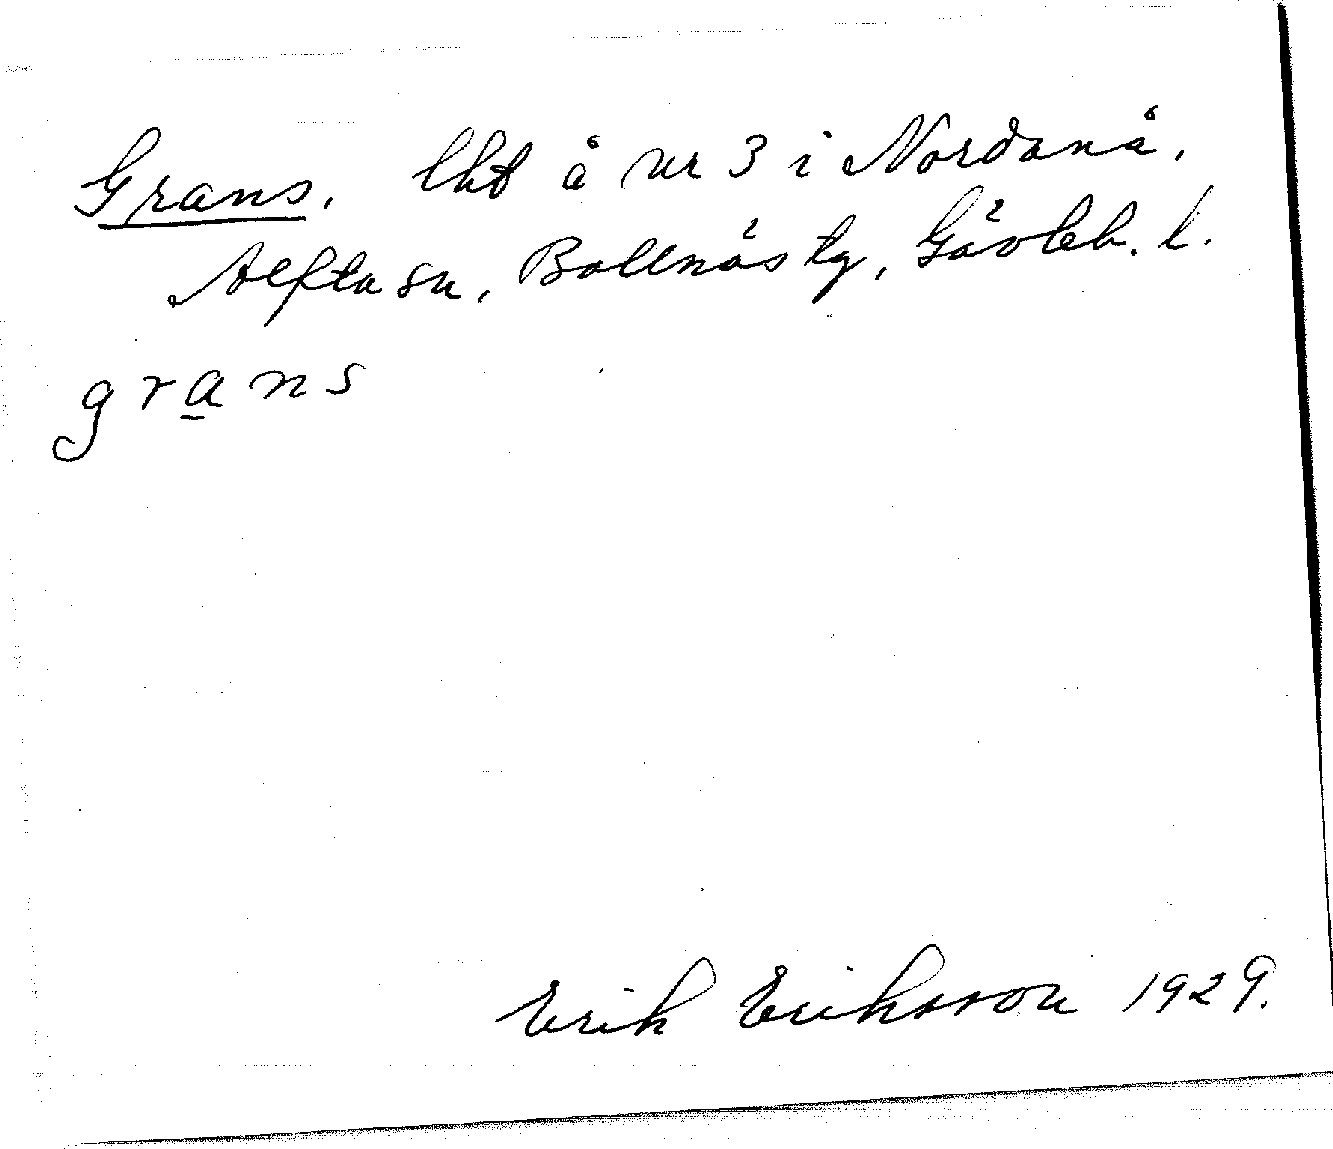 Grans. lht å nr 3 i Nordanå,
Alfta sn, Bollnäs tg, Gävleb. l.
grans
Erik Eriksson 1929.